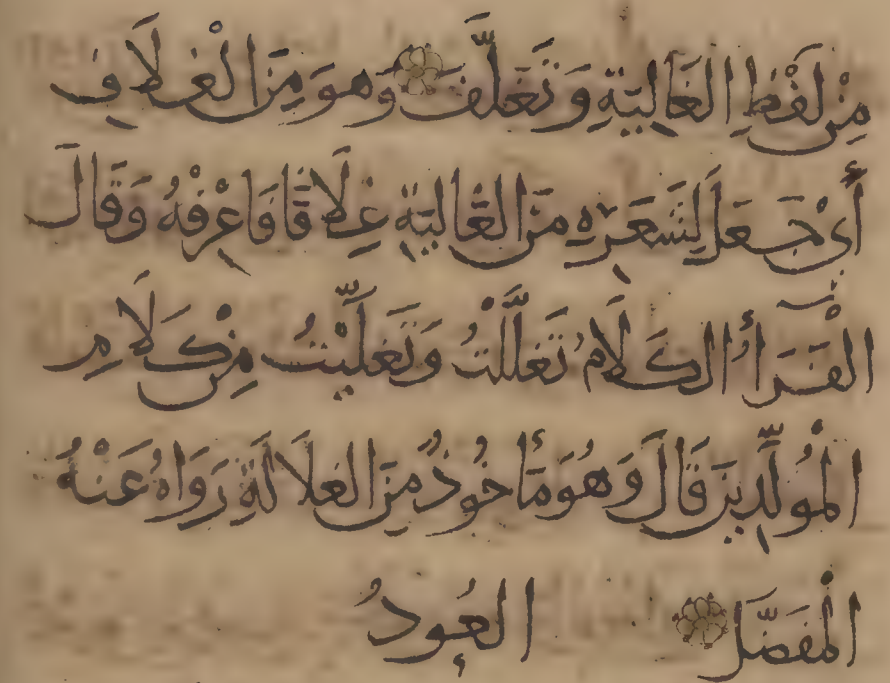 مِنْ لَفْظِ الغَالِيَةِ وَتَغَلَّفَ وَهوَ مِنَ الْغِلَافِ
أَىْ جَعَلَ لِشَعَرِهِ مِنَ الغَاليَةِ غِلَافًا فَاعْرِفْهُ وَقَالَ
الْفَرَّاءُ الكَلَامُ تَغَلَّلْتُ وَتَغَلَّيْتُ مِنْ كَلَامِ
الْمُوَلَّدِينَ قَالَ وَهُوَ مَأْخُوذٌ مِنَ الغلَالَةِ رَوَاهُ عَنْهُ
الْمُفَضَّلُ العُودُ